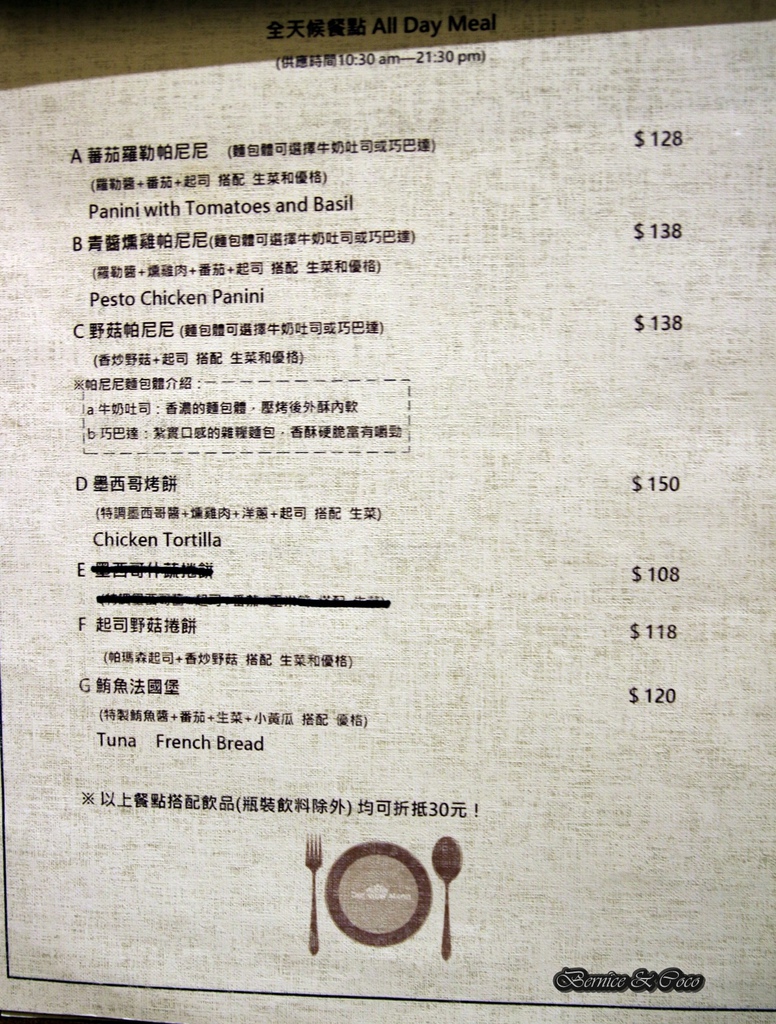 全天候餐點 All Day Meal
(供應時間10:30 am—21:30 pm)
A 蕃茄羅勒帕尼尼 (麵包體可選擇牛奶吐司或巧巴達) $ 128
(羅勒醬+番茄+起司 搭配 生菜和優格)
Panini with Tomatoes and Basil
B 青醬燻雞帕尼尼(麵包體可選擇牛奶吐司或巧巴達) $ 138
(羅勒醬+燻雞肉+番茄+起司 搭配 生菜和優格)
Pesto Chicken Panini
C 野菇帕尼尼 (麵包體可選擇牛奶吐司或巧巴達) $ 138
(香炒野菇+起司 搭配 生菜和優格)
※帕尼尼麵包體介紹：
a 牛奶吐司：香濃的麵包體，壓烤後外酥內軟
b 巧巴達：紮實口感的雜糧麵包，香酥硬脆富有嚼勁
D 墨西哥烤餅 $ 150
(特調墨西哥醬+燻雞肉+洋蔥+起司 搭配 生菜)
Chicken Tortilla
E 墨西哥什蔬捲餅 $ 108
F 起司野菇捲餅 $ 118
(帕瑪森起司+香炒野菇 搭配 生菜和優格)
G 鮪魚法國堡 $ 120
(特製鮪魚醬+番茄+生菜+小黃瓜 搭配 優格)
Tuna French Bread
※ 以上餐點搭配飲品(瓶裝飲料除外) 均可折抵30元！
Bernice & Coco